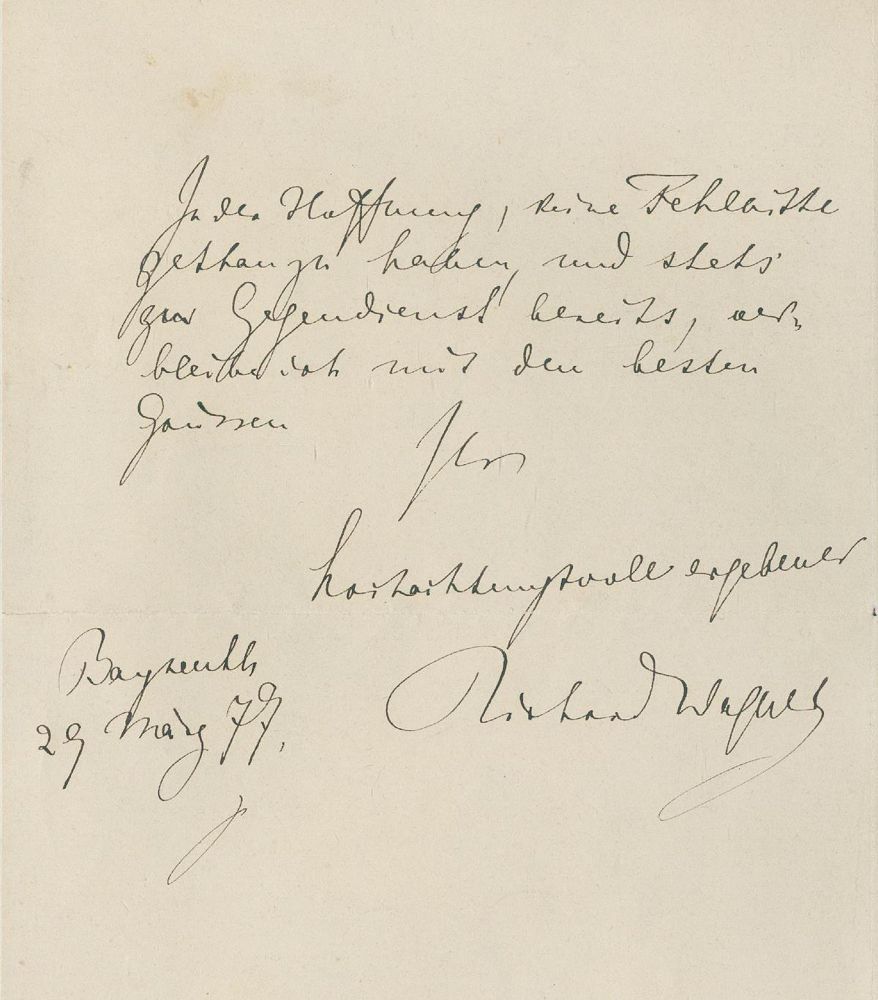 In der Hoffnung, keine Fehlbitte
gethan zu haben, und stets
zu Gegendienst bereits, ver-
bleibe ich mit den besten
Grüssen
Ihr
hochachtungsvoll ergebener
Bayreuth
Richard Wagner
29 März 77.